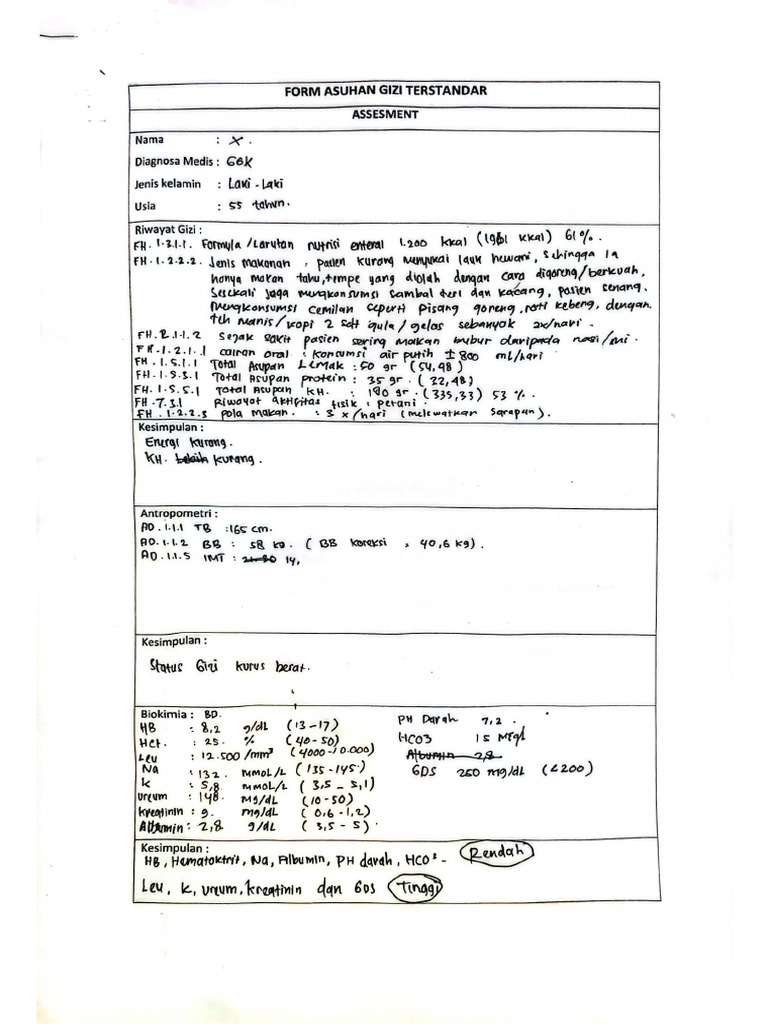 FORM ASUHAN GIZI TERSTANDAR
ASSESMENT
Nama : X.
Diagnosa Medis : GGK
Jenis kelamin : Laki-Laki
Usia : 55 tahun.
Riwayat Gizi :
FH.1.3.1.1. Formula/Larutan nutrisi enteral 1.200 kkal (1961 kkal) 61%.
FH.1.2.2.2. Jenis makanan, pasien kurang menyukai lauk hewani, sehingga ia
hanya makan tahu, tempe yang diolah dengan cara digoreng/berkuah,
Sesekali juga mengkonsumsi sambal teri dan kacang, pasien senang.
Mengkonsumsi cemilan seperti pisang goreng, roti kebeng, dengan.
teh manis/kopi 2 sdt gula/gelas sebanyak 2x/hari.
FH.2.1.1.2 Sejak sakit pasien sering makan bubur daripada nasi/mi.
FH.1.2.1.1 cairan oral : konsumsi air putih ± 800 ml/hari
FH.1.5.1.1 Total Asupan Lemak : 50 gr (54,48)
FH.1.5.3.1 Total Asupan protein : 35 gr. (32,48)
FH.1.5.5.1 Total Asupan KH. : 180 gr. (335,33) 53 %.
FH.7.3.1 Riwayat aktifitas fisik : petani.
FH.1.2.2.3 pola makan. : 3 x/hari (melewatkan sarapan).
Kesimpulan :
Energi kurang.
KH. kurang.
Antropometri :
AD.1.1.1 TB : 165 cm.
AD.1.1.2 BB : 58 kg. (BB koreksi = 40,6 kg).
AD.1.1.5 IMT : 14,
Kesimpulan :
Status Gizi kurus berat.
Biokimia : BD.
HB : 8,2 g/dL (13-17)
Hct. : 25. % (40-50)
Leu : 12.500/mm³ (4000-10.000)
Na : 132. mmoL/L (135-145)
K : 5,8 mmoL/L (3,5 - 5,1)
ureum : 148. Mg/dL (10-50)
kreatinin : 9. mg/dL (0,6-1,2)
Albumin : 2,8 g/dL (3,5-5).
PH Darah 7,2.
HCO3 15 Meq/
Albumin 2,8
GDS 250 mg/dL (<200)
Kesimpulan :
HB, Hematoktrit, Na, Albumin, PH darah, HCO³- Rendah
Leu, K, ureum, kreatinin dan GDS Tinggi